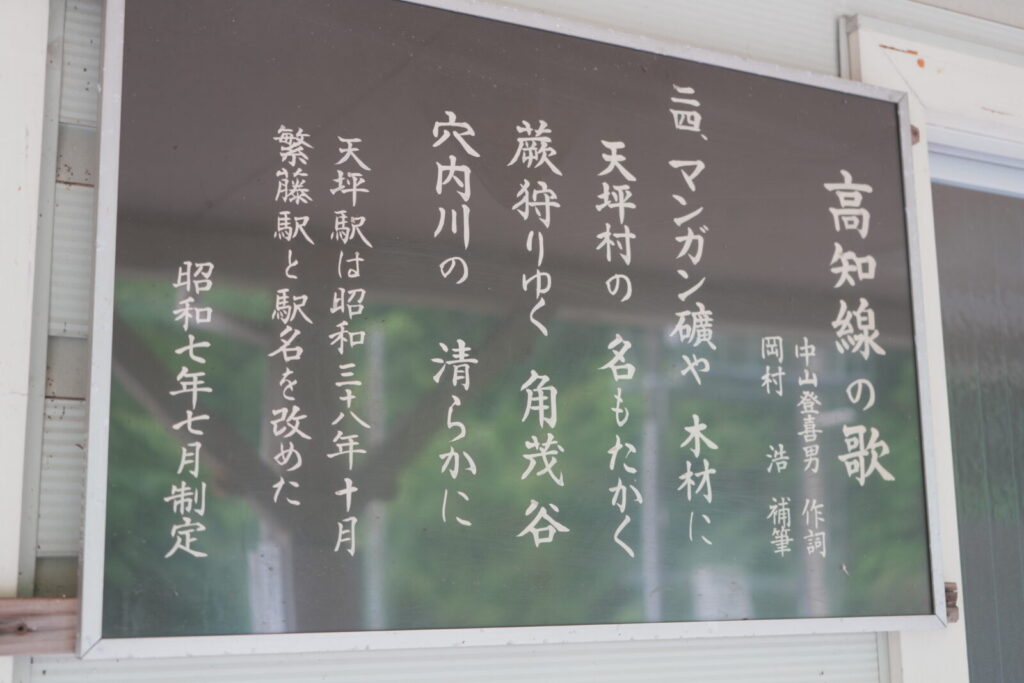 高知線の歌
中山登喜男 作詞
岡村 浩 補筆
二四、マンガン礦や 木材に
天坪村の 名もたかく
蕨狩りゆく 角茂谷
穴内川の 清らかに
天坪駅は昭和三十八年十月
繁藤駅と駅名を改めた
昭和七年七月制定